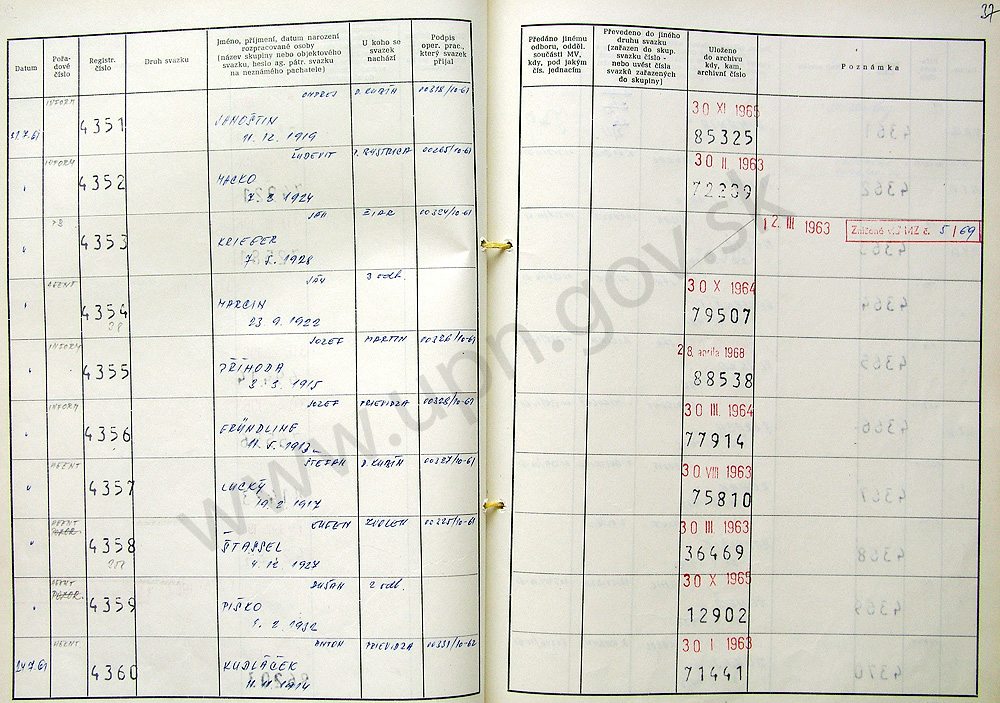 37
Datum
Pořa-
dové
číslo
Registr.
číslo
Druh svazku
Jméno, příjmení, datum narození
rozpracované osoby
(název skupiny nebo objektového
svazku, heslo ag. pátr. svazku
na neznámého pachatele)
U koho se
svazek
nachází
Podpis
oper. prac.,
který svazek
přijal
Předáno jinému
odboru, odděl.
součásti MV,
kdy, pod jakým
čís. jednacím
Převedeno do jiného
druhu svazku
(zařazen do skup.
svazku číslo -
nebo uvést čísla
svazků zařazených
do skupiny)
Uloženo
do archivu
kdy, kam,
archivní číslo
Poznámka
INFORM ONDREJ D. KUBÍN 00318/10-61 30 XI 1965
4351 JANOŠTIN 85325
11. 12. 1919
INFORM ĽUDEVIT 00265/10-61 30 II. 1963
4352 MACKO 72239
7. 3. 1924
JÁN ŽIAR 00324/10-61 12. III 1963 5/69
4353 KRIEGER
7. 5. 1928
AGENT JÁN 3 odb. 30 X 1964
4354 MARCIN 79507
23. 9. 1922
INFORM JOZEF MARTIN 00326/10-61 28. apríla 1968
4355 PŘÍHODA 88538
3. 3. 1915
INFORM JOZEF PRIEVIDZA 00328/10-61 30 III. 1964
4356 GRÜNDLING 77914
AGENT ŠTEFAN D. KUBÍN 00327/10-61 30 VIII 1963
4357 LUCKÝ 75810
19. 2. 1917
AGENT EUGEN ZVOLEN 00325/10-61 30 III. 1963
4358 ŠTASSEL 36469
4. 12. 1927
AGENT DUŠAN 2 odb. 30 X 1965
4359 PIŠKO 12902
1. 2. 1932
24.7.61 AGENT ANTON PRIEVIDZA 00331/10-62 30 I 1963
4360 KUDLÁČEK 71441
11. 11. 1914
www.upn.gov.sk